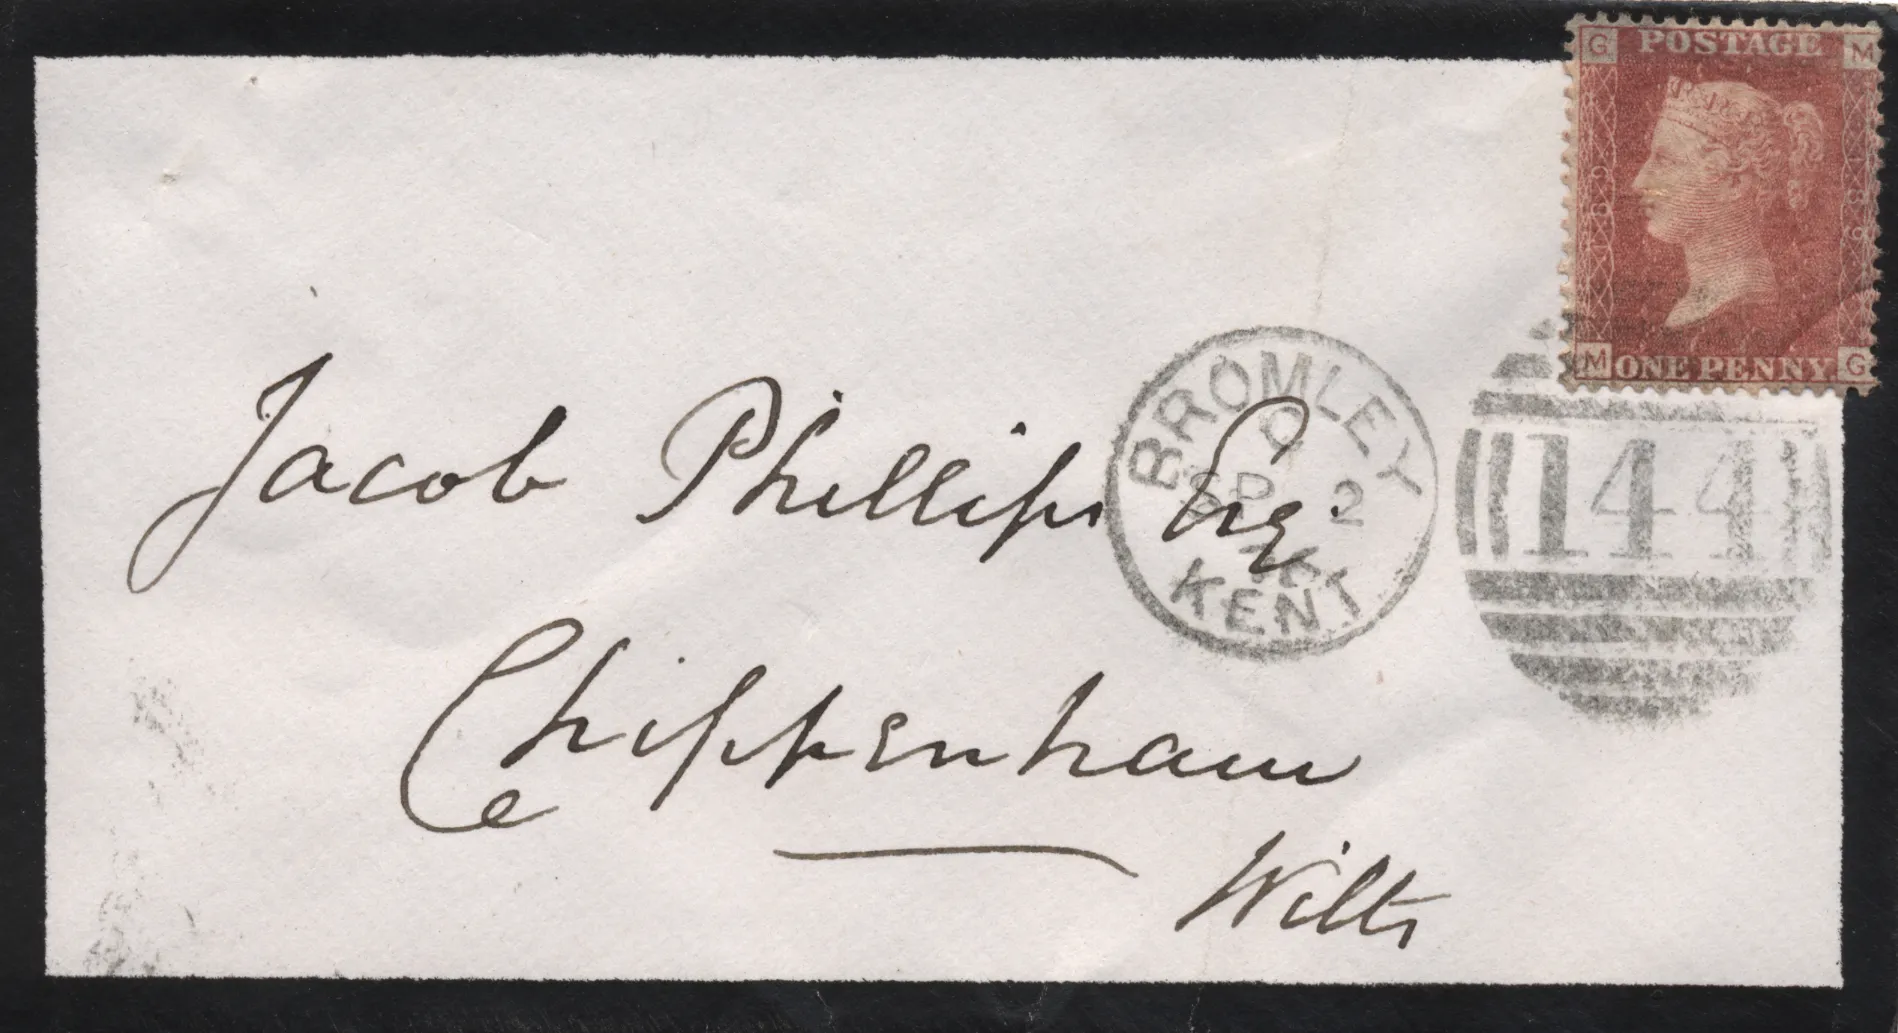 G POSTAGE M
M ONE PENNY G
BROMLEY
SP 2
76
KENT
144
Jacob Phillips Esq
Chippenham
Wilts